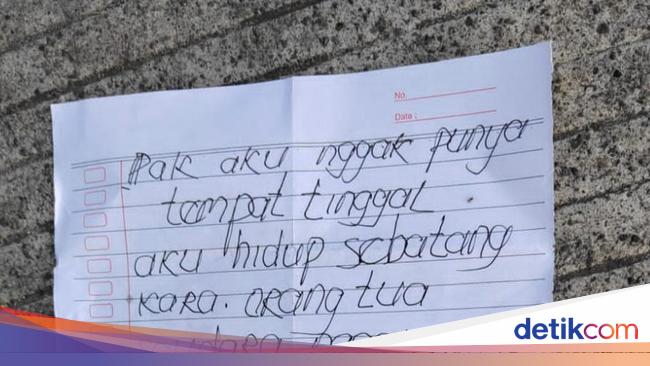 No.
Date :
Pak aku nggak punya
tempat tinggal.
aku hidup sebatang
kara. orang tua
detikcom